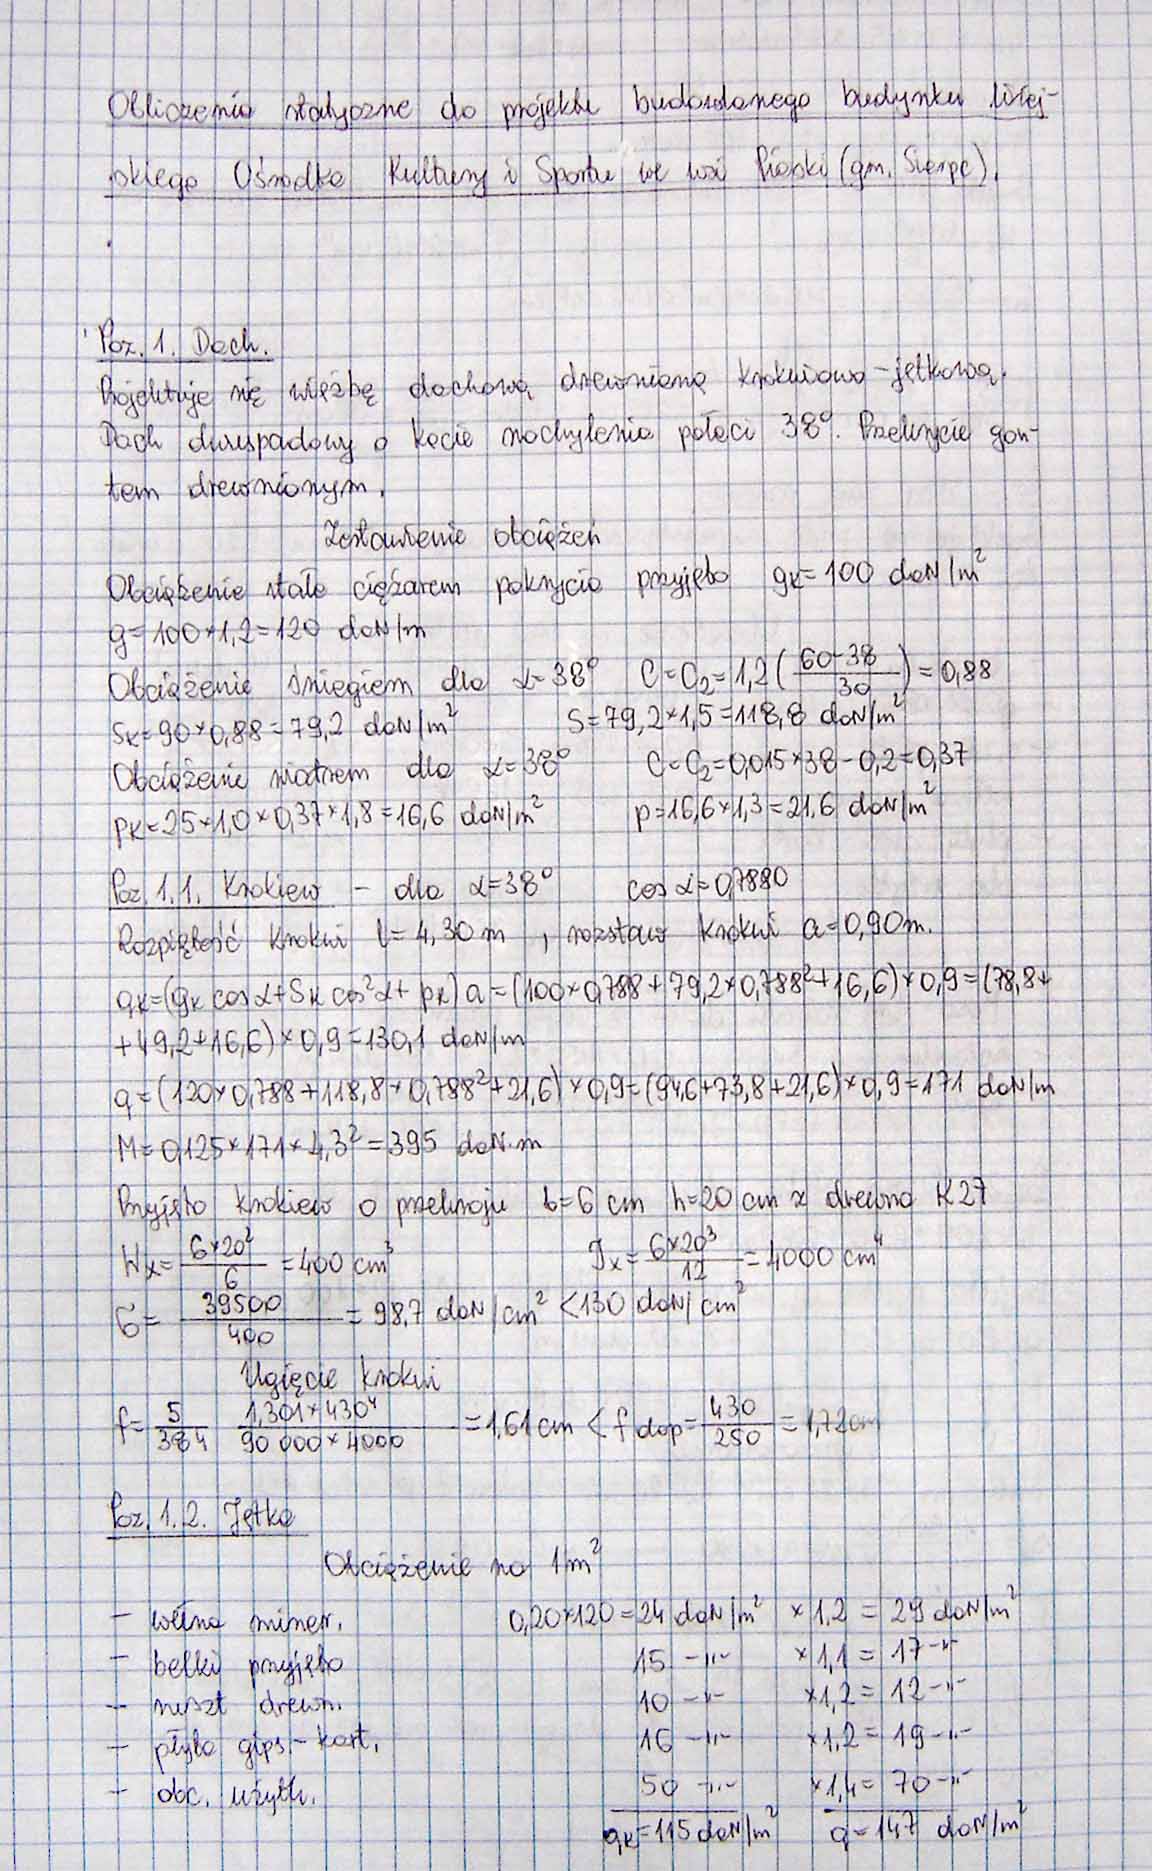 Obliczenia statyczne do projektu budowlanego budynku Wiej-
skiego Ośrodka Kultury i Sportu we wsi Piaski (gm. Sierpc).
Poz. 1. Dach.
Projektuje się więźbę dachową drewnianą krokwiowo-jętkową.
Dach dwuspadowy o kącie nachylenia połaci 38°. Przekrycie gon-
tem drewnianym.
Zestawienie obciążeń
Obciążenie stałe ciężarem pokrycia przyjęto gk=100 daN/m²
g=100×1,2=120 daN/m
Obciążenie śniegiem dla α=38° C=C₂=1,2(60-38/30)=0,88
Sk=90×0,88=79,2 daN/m² S=79,2×1,5=118,8 daN/m²
Obciążenie wiatrem dla α=38° C=C₂=0,015×38-0,2=0,37
pk=25×1,0×0,37×1,8=16,6 daN/m² p=16,6×1,3=21,6 daN/m²
Poz. 1.1. Krokiew - dla α=38° cos α=0,7880
Rozpiętość krokwi l=4,30m, rozstaw krokwi a=0,90m.
qk=(gk cos α+Sk cos²α+pk)a=(100×0,788+79,2×0,788²+16,6)×0,9=(78,8+
+49,2+16,6)×0,9=130,1 daN/m
q=(120×0,788+118,8×0,788²+21,6)×0,9=(94,6+73,8+21,6)×0,9=171 daN/m
M=0,125×171×4,3²=395 daN·m
Przyjęto krokiew o przekroju b=6 cm h=20 cm z drewna K27
Wx=6×20²/6=400 cm³ Jx=6×20³/12=4000 cm⁴
σ=39500/400=98,7 daN/cm² <130 daN/cm²
Ugięcie krokwi
f=5/384 1,301×430⁴/90 000×4000=1,61 cm < f dop=430/250=1,72cm
Poz. 1.2. Jętka
Obciążenie na 1m²
- wełna miner. 0,20×120=24 daN/m² ×1,2=29 daN/m²
- belki przyjęto 15 -"- ×1,1=17 -"-
- ruszt drewn. 10 -"- ×1,2=12 -"-
- płyta gips-kart. 16 -"- ×1,2=19 -"-
- obc. użytk. 50 -"- ×1,4=70 -"-
qk=115 daN/m² q=147 daN/m²